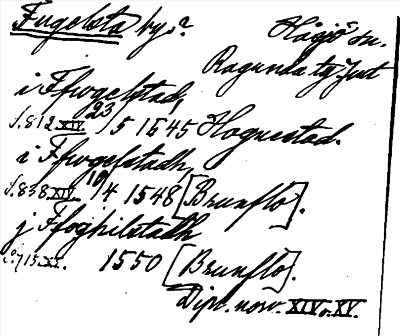 Fugelsta by.?
Håsjö sn.
Ragunda tg. Jmt
i Ffwgelstad,
s. 812 XIV. 23/5 1545 Hognestad.
i Ffwgelstadh,
s. 838 XIV. 10/4 1548 [Brunflo].
j Ffoghilstadh
s. 715. XV. 1550 [Brunflo].
Dipl. norv. XIV o. XV.